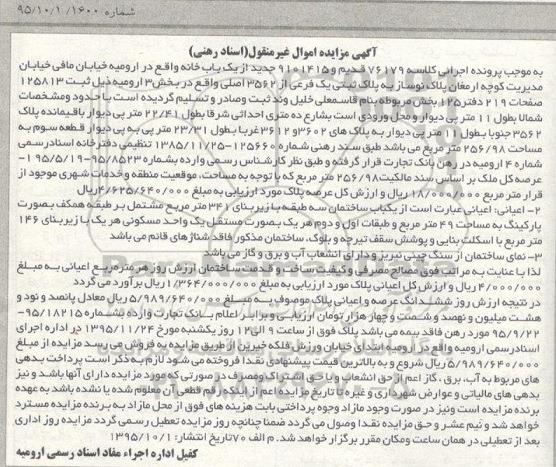 شماره ۱۶۰۰/ ۹۵/۱۰/۱
آگهی مزایده اموال غیرمنقول(اسناد رهنی)
به موجب پرونده اجرائی کلاسه ۷۶۱۷۹ قدیم و ۹۱۰۱۴۱۵ جدید از یک باب خانه واقع در ارومیه خیابان مافی خیابان
مدیریت کوچه ارمغان پلاک نوساز به پلاک ثبتی یک فرعی از ۳۵۶۲ اصلی واقع در بخش۳ ارومیه ذیل ثبت ۱۲۵۸۱۳
صفحات ۲۱۹ دفتر۱۲۵ بخش مربوطه بنام قاسمعلی خلیل وند ثبت وصادر و تسلیم گردیده است با حدود ومشخصات
شمالا بطول ۱۱ متر پی دیوار و محل ورودی است بشارع ده متری احداثی شرقا بطول ۲۲/۴۱ متر پی دیوار باقیمانده پلاک
۳۵۶۲ جنوبا بطول ۱۱ متر پی دیوار به پلاک های ۳۶۰۲و ۳۶۱۲ غربا بطول ۲۳/۳۱ متر پی به پی دیوار قطعه سوم به
مساحت ۲۵۶/۹۸ متر مربع می باشد طبق سند رهنی شماره ۱۲۵۶۶۰-۱۳۸۵/۱۱/۲۵ تنظیمی دفترخانه اسناد رسمی
شماره ۴ ارومیه در رهن بانک تجارت قرار گرفته و طبق نظر کارشناس رسمی وارده بشماره ۹۵/۸۵۲۳-۹۵/۵/۱۹ ۱-
عرصه کل ملک بر اساس سند مالکیت ۲۵۶/۹۸ متر مربع که با توجه به مساحت، موقعیت منطقه و خدمات شهری موجود از
قرار متر مربع ۱۸/۰۰۰/۰۰۰ ریال و ارزش کل عرصه پلاک مورد ارزیابی به مبلغ ۴/۶۲۵/۶۴۰/۰۰۰ ریال
۲- اعیانی: اعیانی عبارت است از یکباب ساختمان سه طبقه با زیربنای ۳۴۱ متر مربع مشتمل بر طبقه همکف بصورت
پارکینگ به مساحت ۴۹ متر مربع و طبقات اول و دوم هر یک بصورت مستقل یک واحد مسکونی هر یک با زیربنای ۱۴۶
متر مربع با اسکلت بنایی و پوشش سقف تیرچه و بلوک، ساختمان مذکور فاقد شناژهای قائم می باشد
۳- نمای ساختمان از سنگ چینی نیریز و دارای انشعاب آب و برق و گاز می باشد
لذا با عنایت به مراتب فوق مصالح مصرفی و کیفیت ساخت و قدمت ساختمان ارزش روز هر متر مربع اعیانی به مبلغ
۴/۰۰۰/۰۰۰ ریال و ارزش کل اعیانی پلاک مورد ارزیابی به مبلغ ۱/۳۶۴/۰۰۰/۰۰۰ ریال برآورد می گردد
در نتیجه ارزش روز ششدانگ عرصه و اعیانی پلاک موصوف به مبلغ ۵/۹۸۹/۶۴۰/۰۰۰ ریال معادل پانصد و نود و
هشت میلیون و نهصد و شصت و چهار هزار تومان ارزیابی و برابر اعلام بانک تجارت وارده بشماره ۹۵/۱۸۲۱۵-
۹۵/۹/۲۲ مورد رهن فاقد بیمه می باشد پلاک فوق از ساعت ۹ الی۱۲ روز یکشنبه مورخ ۱۳۹۵/۱۱/۲۴ در اداره اجرای
اسناد رسمی ارومیه واقع در ارومیه ابتدای خیابان ورزش فلکه خیرین از طریق مزایده به فروش می رسد مزایده از مبلغ
۵/۹۸۹/۶۴۰/۰۰۰ ریال شروع و به بالاترین قیمت پیشنهادی نقدا فروخته می شود لازم به ذکر است پرداخت بدهی
های مربوط به آب، برق، گاز اعم از حق انشعاب و یا حق اشتراک ومصرف در صورتی که مورد مزایده دارای آنها باشد و نیز
بدهی های مالیاتی و عوارض شهرداری و غیره تا تاریخ مزایده اعم از اینکه رقم قطعی آن معلوم شده یا نشده باشد به عهده
برنده مزایده است و نیز در صورت وجود مازاد وجوه پرداختی بابت هزینه های فوق از محل مازاد به برنده مزایده مسترد
خواهد شد و نیم عشر و حق مزایده نقدا وصول می گردد ضمنا چنانچه روز مزایده تعطیل رسمی گردد مزایده روز اداری
بعد از تعطیلی در همان ساعت ومکان مقرر برگزار خواهد شد. م الف ۷۰ تاریخ انتشار: ۱۳۹۵/۱۰/۱
کفیل اداره اجراء مفاد اسناد رسمی ارومیه